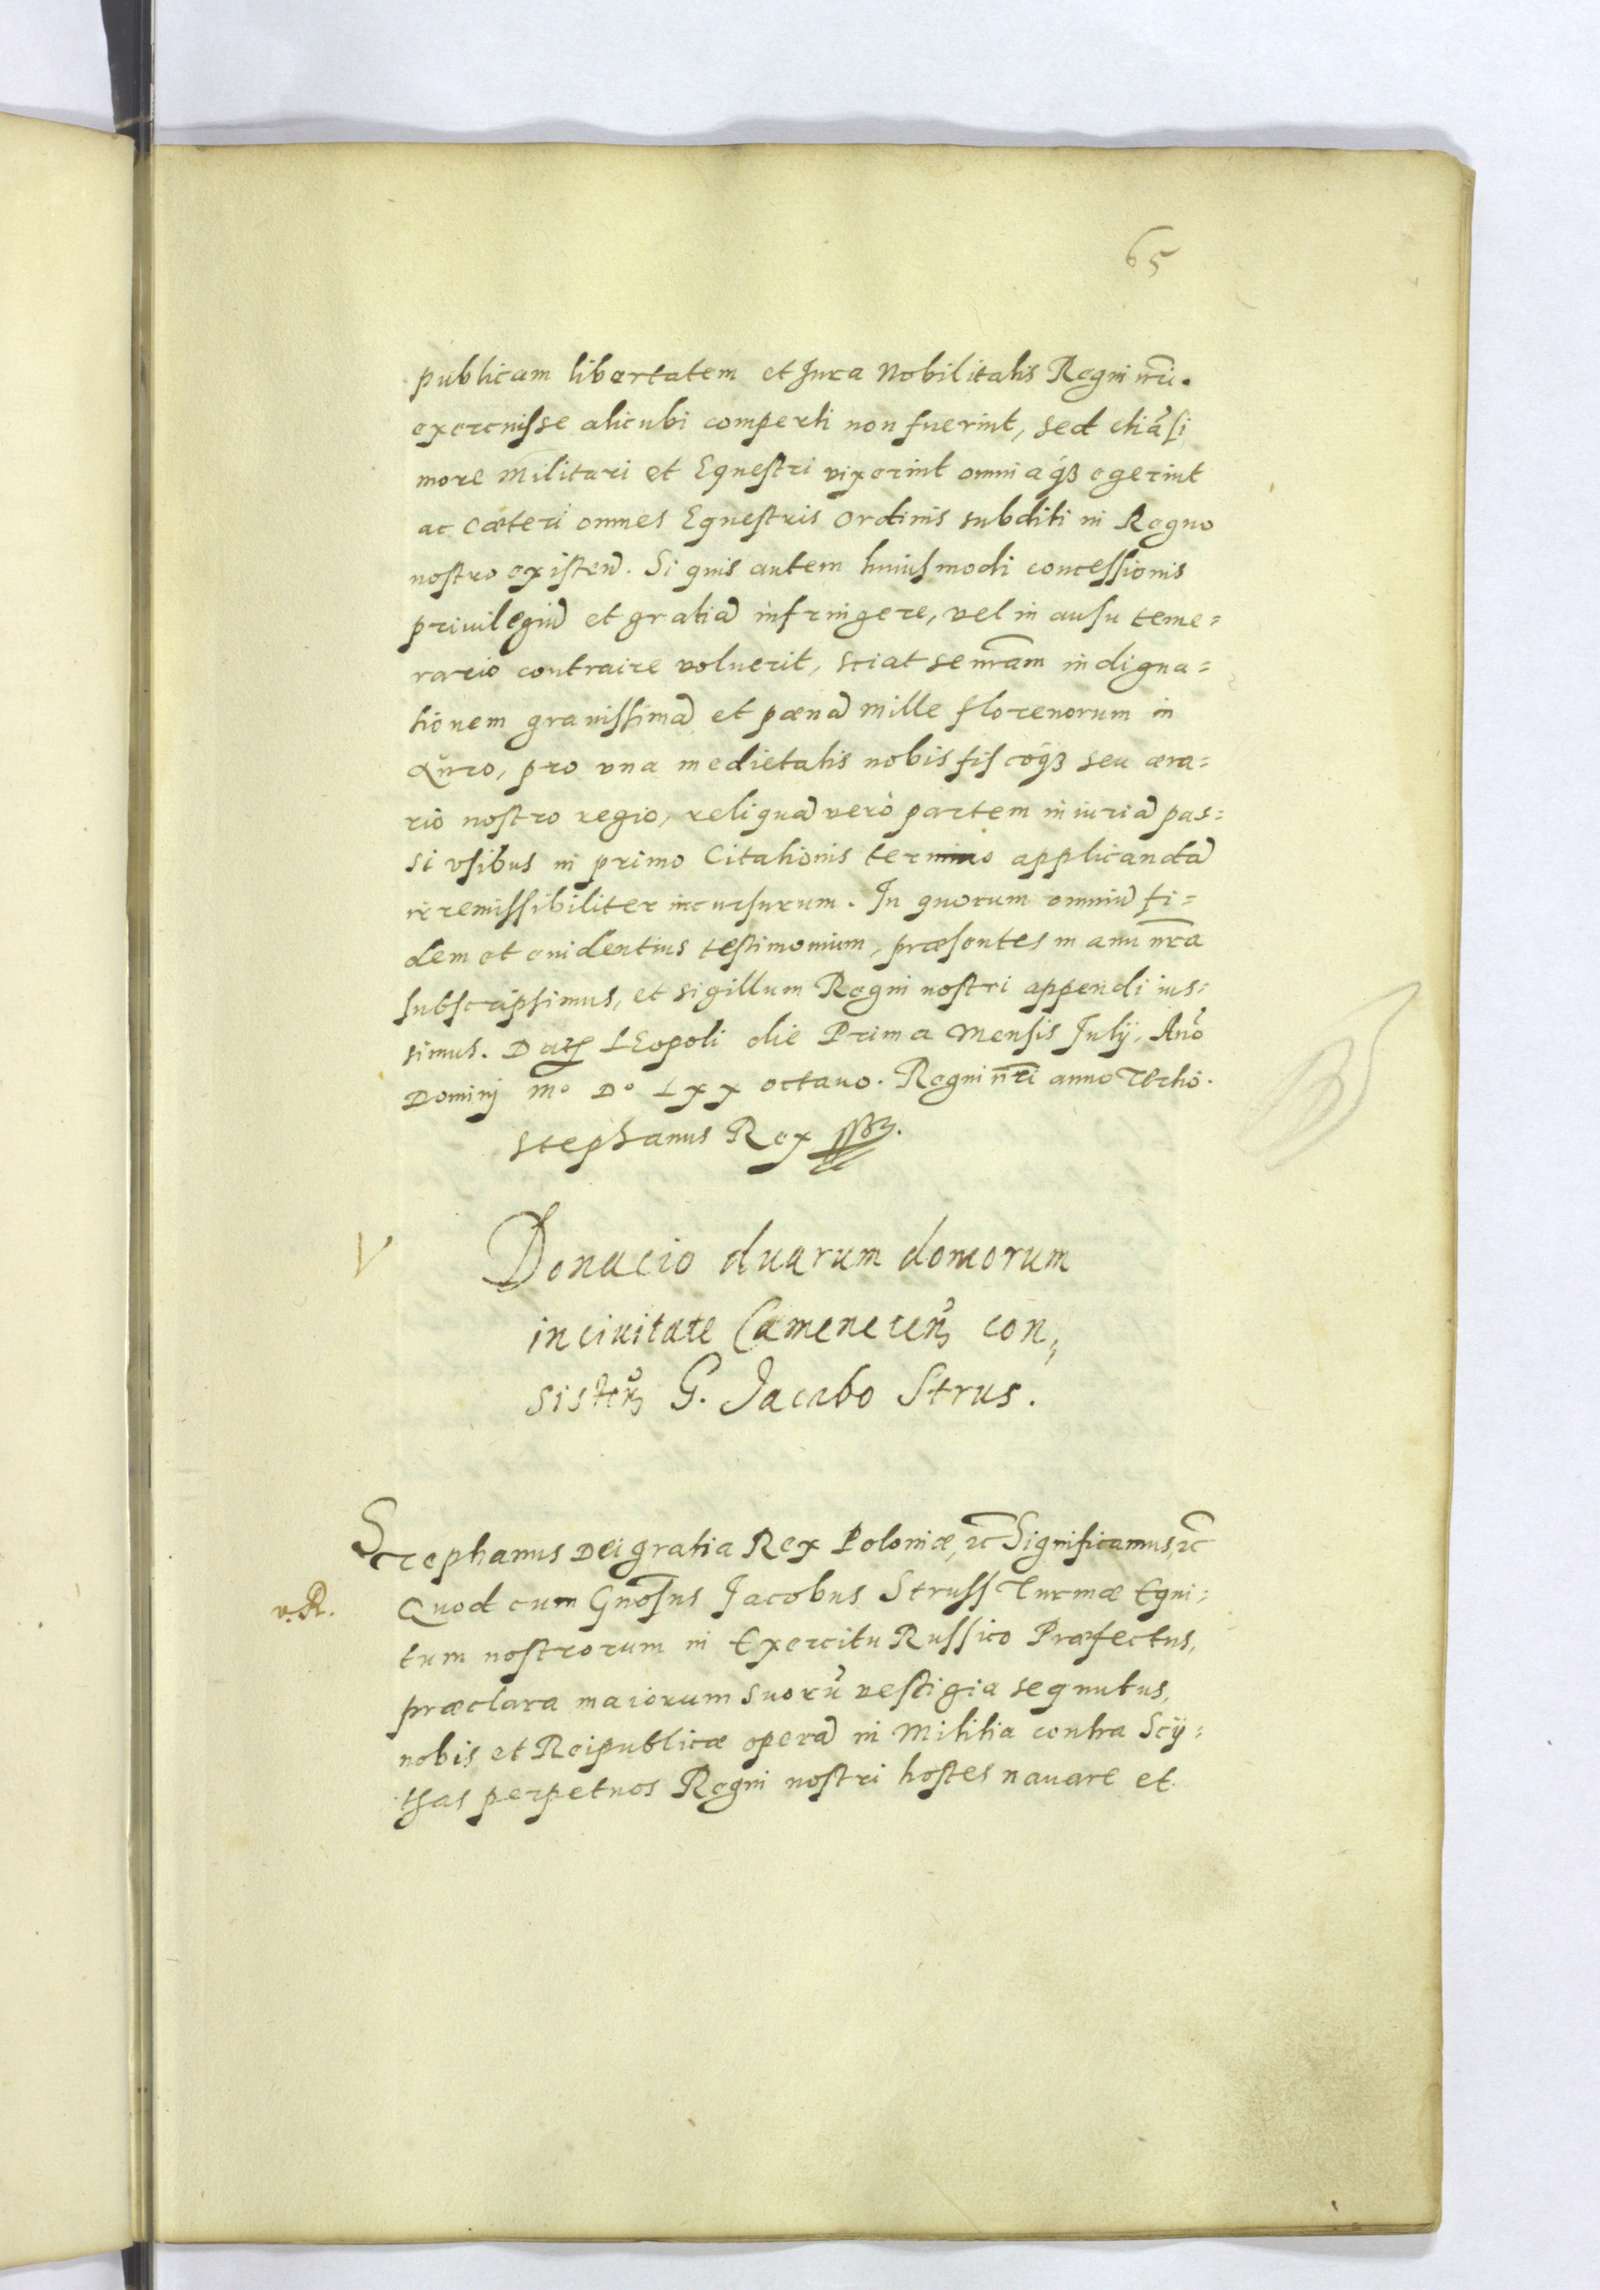 65
publicam libertatem et Jura Nobilitatis Regni nr̃i.
exercuisse alicubi comperti non fuerint, sed etiã si
more Militari et Equestri vixerint omniaq́ꝫ egerint
ac cæteri omnes Equestris Ordinis subditi in Regno
nostro existeñ. Si quis autem huiusmodi concessionis
priuilegiũ et gratiã infringere, vel in ausu teme=
rario contraire voluerit, sciat se nr̃am indigna=
tionem grauissimã et pœnã mille florenorum in
auro, pro una medietatis nobis fiscoq́ꝫ seu æra=
rio nostro regio, reliquã verò partem iniuriã pas=
si vsibus in primo Citationis termino applicandã
irremissibiliter incursurum. In quorum omniũ fi=
dem et euidentius testimonium, præsentes manu nr̃a
subscripsimus, et sigillum Regni nostri appendi ius=
simus. Datꝫ LEopoli die Prima Mensis Julij, Año
Domini Mº Dº Lxx octauo. Regni nr̃i anno Tertio.
Stephanus Rex sst.
V
Donacio duarum domorum
in ciuitate Cameneceñ con,
sisteñ G. Jacobo Strus.
Stephanus Dei gratia Rex Poloniæ, ꝛc̃ Significamus, ꝛc̃
v. R.
Quod cum Gnõsus Jacobus Struss Turmæ Equi=
tum nostrorum in Exercitu Russico Præfectus,
præclara maiorum suorũ vestigia sequutus,
nobis et Reipublicæ operã in Militia contra Scÿ=
thas perpetuos Regni nostri hostes nauare et